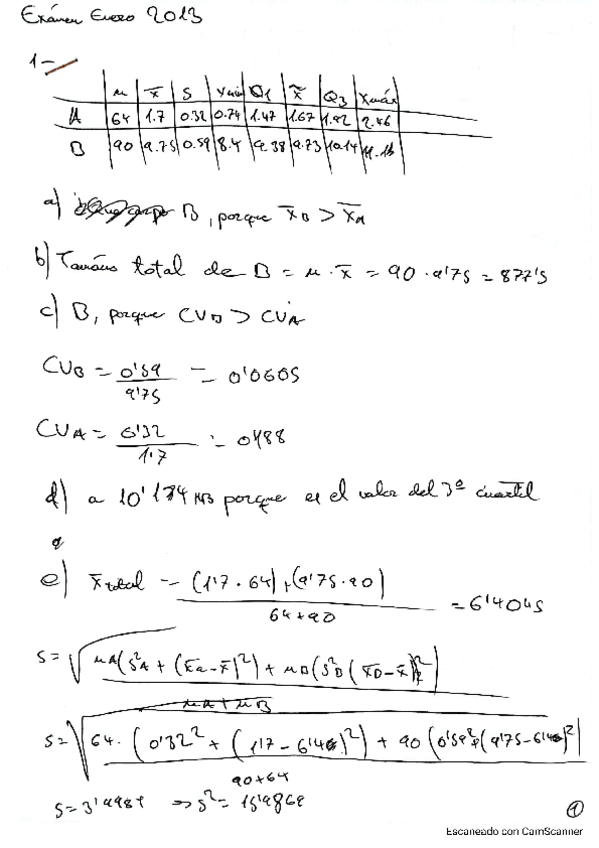 Exámen Enero 2013
1-
n x̄ S Xmin Q1 x̃ Q3 Xmáx
A 64 1.7 0.32 0.74 1.47 1.67 1.92 2.46
B 90 9.75 0.59 8.4 9.38 9.73 10.14 11.16
a) B, porque x̄B > x̄A
b) Tamaño total de B = n · x̄ = 90 · 9'75 = 877'5
c) B, porque CVB > CVA
CVB = 0'59 / 9'75 = 0'0605
CVA = 0'32 / 1'7 = 0'188
d) a 10'174 MB porque es el valor del 3º cuartil
e) x̄total = (1'7 · 64) + (9'75 · 90) / 64+90 = 6'4045
S = √ nA(S²A + (x̄a - x̄)²) + nB(S²B (x̄B - x̄)²) / nA + nB
S = √ 64 · (0'32² + (1'7 - 6'40)²) + 90 (0'59² + (9'75 - 6'40)²) / 90+64
S = 3'9981 ⇒ S² = 15'9869
1
Escaneado con CamScanner